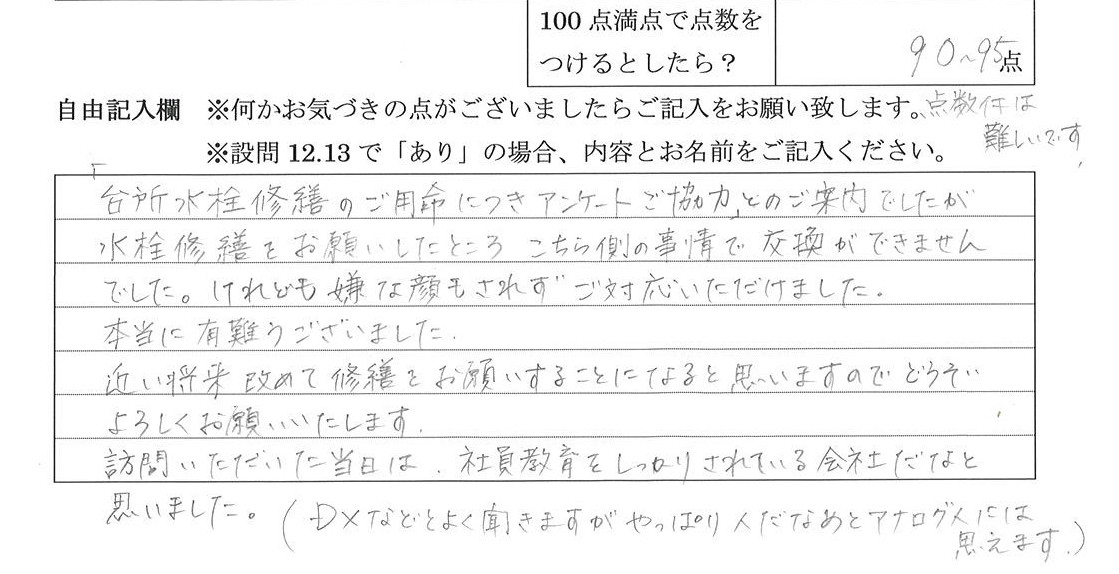 100点満点で点数を
つけるとしたら？
90~95点
自由記入欄 ※何かお気づきの点がございましたらご記入をお願い致します。
点数付は
難しいです
※設問12.13で「あり」の場合、内容とお名前をご記入ください。
「台所水栓修繕のご用命につきアンケートご協力」とのご案内でしたが
水栓修繕をお願いしたところ こちら側の事情で交換ができません
でした。けれども嫌な顔もされずご対応いただけました。
本当に有難うございました。
近い将来改めて修繕をお願いすることになると思いますのでどうぞ
よろしくお願いいたします。
訪問いただいた当日は、社員教育をしっかりされている会社だなと
思いました。(DXなどとよく聞きますがやっぱり人だなあとアナログ人には
思えます。)